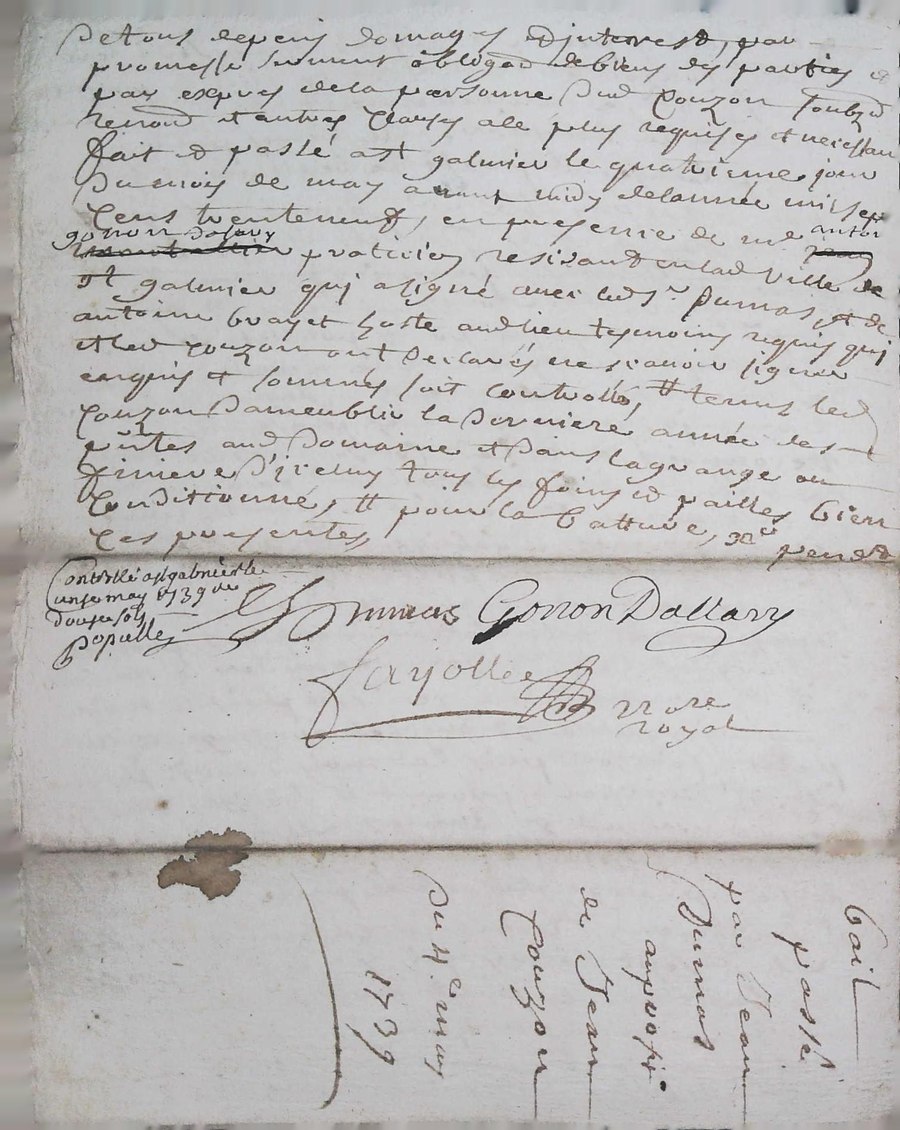 De tous depens domages et interest, par
promesse serment obligaõn de biens des parties et
par expres de la personne dud Couzon soubz
renonõn et autres clauses a ce plus requises et necessaires
fait et passé a St galmier le quatrieme jour
Du mois de may avant midy de l'année mil sept
Cens trente neuf, en presence de me antoi
gonon Dallary praticien residant en lad ville de
St galmier qui a signé avec led sr. Dumas, et de
antoine brayet hoste audlieu tesmoins requis qui
et led couzon ont declarés ne scavoir signer
enquis et sommés soit controllé, # tenus led
Couzon Dameublir la Derniere année des
pñtes aud Domaine et Dans la grange ou
feniere D'iceluy tous les foins et pailles bien
Conditionné, # pour la batture,
Ces presentes,
pendt
Controllé a St galmier le
unze may 1739
douze sols
populle
Dumas Gonon Dallary
fayolle nore
royal
bail
passé
par Jean
Dumas
au profit
de Jean
Couzon
Du 4e. may
1739